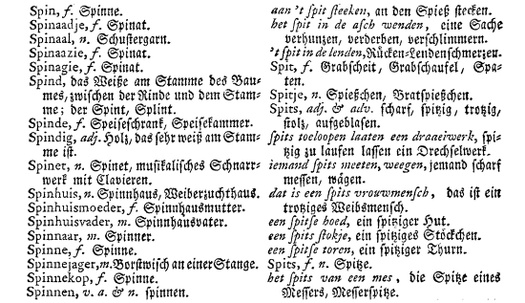 Spin, f. Spinne.
Spinaadje, f. Spinat.
Spinaal, n. Schustergarn.
Spinaazie, f. Spinat.
Spinagie, f. Spinat.
Spind, das Weiße am Stamme des Bau-
mes, zwischen der Rinde und dem Stam-
me; der Spint, Splint.
Spinde, f. Speiseschrank, Speisekammer.
Spindig, adj. Holz, das sehr weiß am Stam-
me ist.
Spinet, n. Spinet, musikalisches Schnarr-
werk mit Clavieren.
Spinhuis, n. Spinnhaus, Weiberzuchthaus.
Spinhuismoeder, f. Spinnhausmutter.
Spinhuisvader, m. Spinnhausvater.
Spinnaar, m. Spinner.
Spinne, f. Spinne.
Spinnejager, m. Borstwisch an einer Stange.
Spinnekop, f. Spinne.
Spinnen, v. a. & n. spinnen.
aan 't spit steeken, an den Spieß stecken.
het spit in de asch wenden, eine Sache
verhunzen, verderben, verschlimmern.
't spit in de lenden, Rücken-Lendenschmerzen.
Spit, f. Grabscheit, Grabschaufel, Spa-
ten.
Spitje, n. Spießchen, Bratspießchen.
Spits, adj. & adv. scharf, spitzig, trotzig,
stolz, aufgeblasen.
spits toeloopen laaten een draaierwerk, spi-
tzig zu laufen lassen ein Drechselwerk.
iemand spits meeten, weegen, jemand scharf
messen, wägen.
dat is een spits vrouwmensch, das ist ein
trotziges Weibsmensch.
een spitse hoed, ein spitziger Hut.
een spits stokje, ein spitziges Stöckchen.
een spitse toren, ein spitziger Thurn.
Spits, f. n. Spitze.
het spits van een mes, die Spitze eines
Messers, Messerspitze.